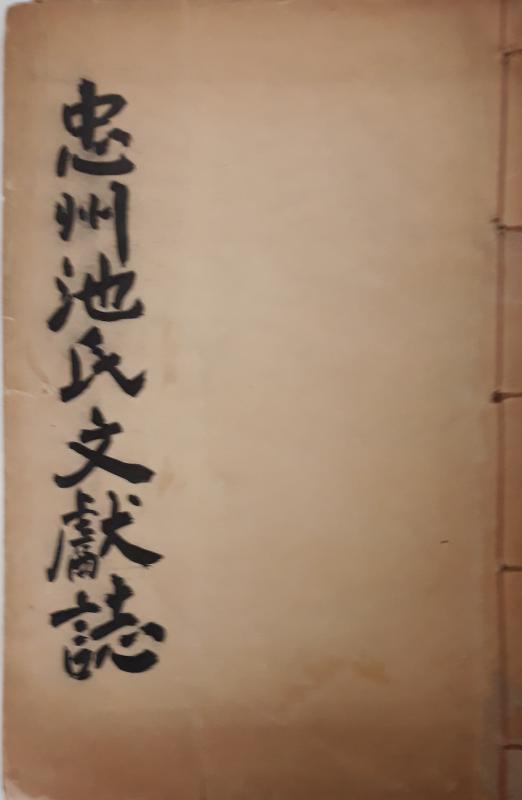 忠州池氏文獻誌